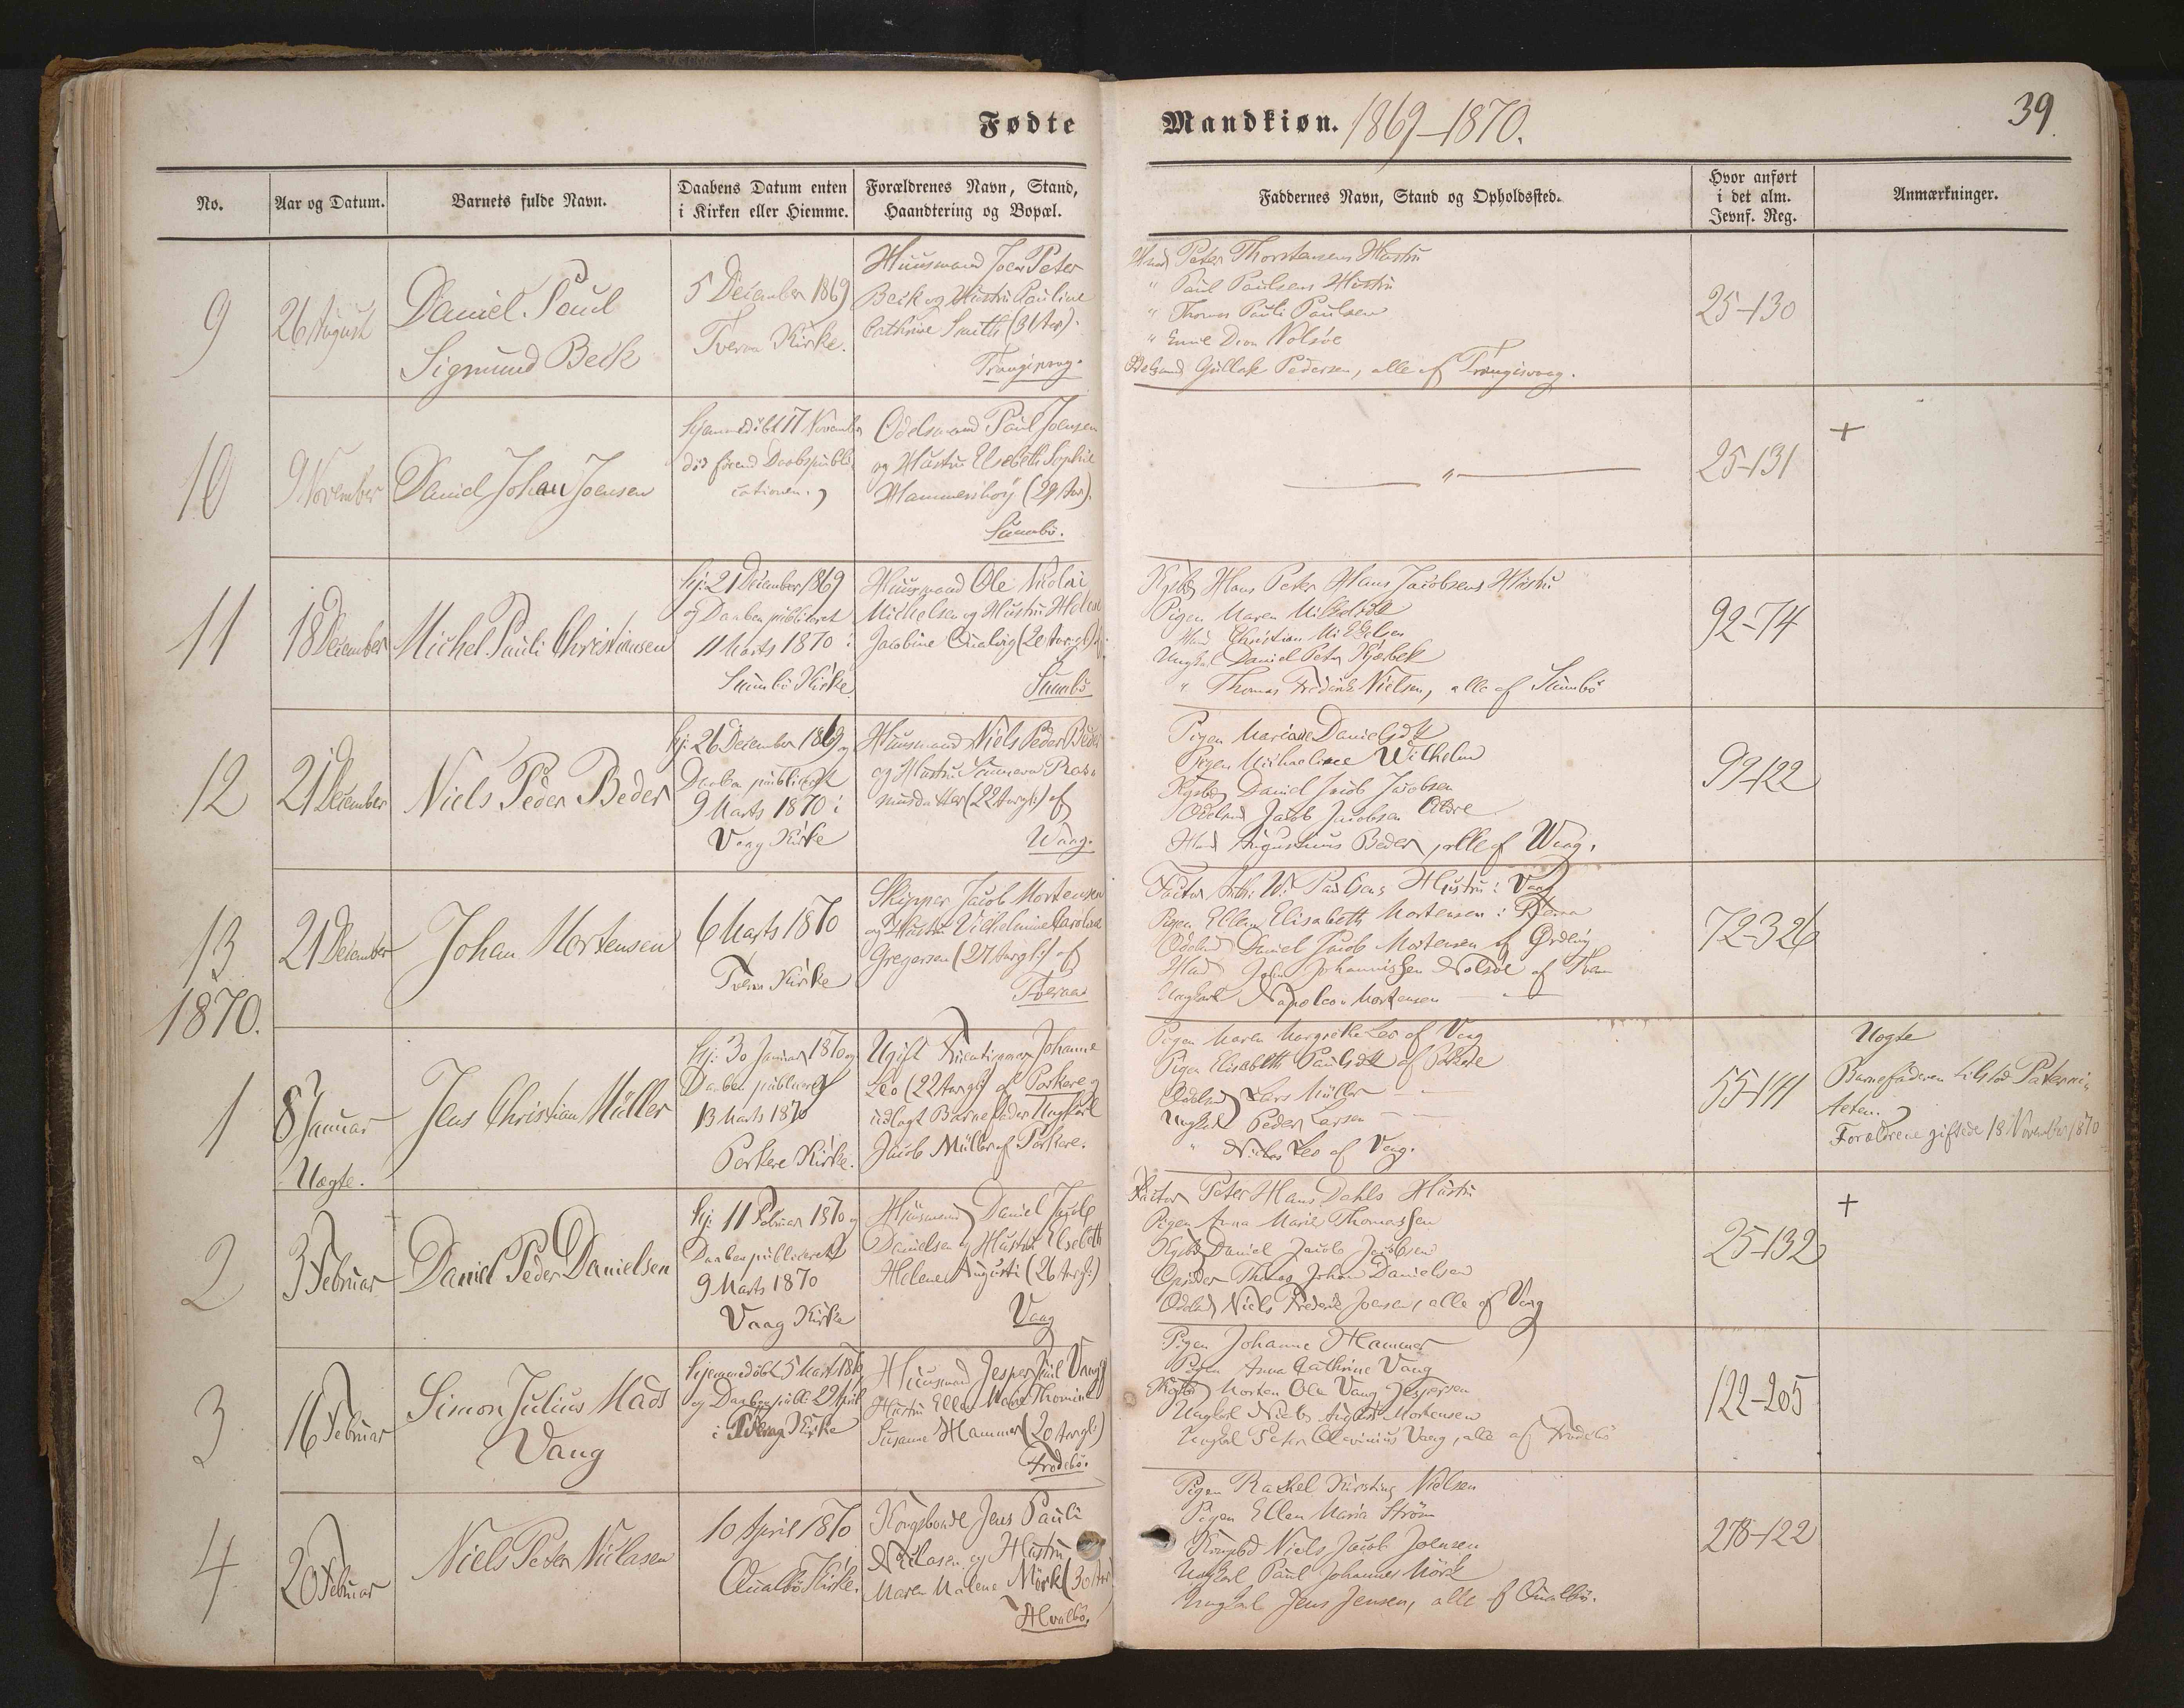 Fødte
Mandkiøn. 1869-1870.
39
No.
Aar og Datum.
Barnets fulde Navn.
Daabens Datum enten
i Kirken eller Hiemme.
Forældrenes Navn, Stand,
Haandtering og Bopæl.
Faddernes Navn, Stand og Opholdssted.
Hvor anført
i det alm.
Jevnf. Reg.
Anmærkninger.
9
26 August
Daniel Poul
Sigmund Beck
5 December 1869
Tveraa Kirke.
Huusmand Joen Peter
Beck og Hustru Pauline
Cathrine Smith (31 Aar).
Trangisvaag.
Hmd Peter Thorstensens Hustru
" Paul Paulsens Hustru
" Thomas Pauli Paulsen
Nolsöe
Gullak Pedersen, alle af Trangisvaag.
25-130
10
9 November
Daniel Johan Joensen
Hjemmedöbt 17 November
död förend Daabspubli
cationen.
Odelsmand Paul Joensen
og Hustru Elsebeth Sophie
Hammershöy (29 Aar).
Sumbö.
"
25-131
+
11
18 December
Michel Pauli Christiansen
Hj: 21 December 1869
og Daaben publiceret
11 Marts 1870 i
Sumbö Kirke
Huusmand Ole Nicolai
Michelsen og Hustru Helene
Jacobine (20 Aar gl)
Sumbö
Kgsbd Hans Peter Hans Jacobsens Hustru
Pigen Maren
Hmd Christian Mikkelsen
Ungkarl Daniel Peter Kjærbek
" Thomas Frederik Nielsen, alle af Sumbö
92-74
12
21 December
Niels Peder Beder
Hj: 26 December 1869 og
Daaben publiceret
9 Marts 1870 i
Vaag Kirke
Huusmand Niels Peder Beder
og Hustru Sunneva Ras-
musdatter (22 Aar gl:) af
Waag.
Pigen Mariane Danielsdtt
Pigen Michaeline Wilhelm
Kgsbd Daniel Jacob Jacobsen
Odelsmd Jacob Jacobsen Ældre
Hmd Augustinus Beder, alle af Waag.
99-122
13
21 December
Johan Mortensen
6 Marts 1870
Tveraa Kirke
Skipper Jacob Mortensen
og Hustru Vilhelmine Carolina
Gregersen (27 Aar gl:) af
Tveraa
Factor Poulsens Hustru i Vaag
Pigen Ellen Elisabeth Mortensen i Tveraa
Odelsmd Daniel Jacob Mortensen af Ørdevig
Hmd John Johannissen Nolsöe af Tveraa
Ungkarl Napoleon Mortensen — " —
72-326
1870.
1
8 Januar
Uægte.
Jens Christian Müller
Hj: 30 Januar 1870 og
Daaben publiceret
13 Marts 1870
Porkere Kirke.
Ugift Johanne
Leo (22 Aar gl:) af Porkere og
udlagt Barnefader Ungkarl
Jacob Müller af Porkere.
Pigen Maren Margrethe Leo af Vaag
Pigen Elisabeth Paulsdtt af Porkere
Odelsmd Lars Müller — —
Ungkarl Peder Larsen — —
" Niclas Leo af Vaag.
55-141
Uægte
Barnefaderen tilstod Paterni-
teten.
Forældrene giftede 18 November 1870
2
3 Februar
Daniel Peder Danielsen
Hj: 11 Februar 1870 og
Daaben publiceret
9 Marts 1870
Vaag Kirke
Huusmand Daniel Jacob
Danielsen og Hustru Elsebeth
Helene Augusti (26 Aar gl:)
Vaag
Factor Peter Hans Dahls Hustru
Pigen Anna Marie Thomassen
Kgsbd Daniel Jacob Jacobsen
Opsidder Thomas Johan Danielsen
Odelsmd Niels Frederik Joensen, alle af Vaag
25-132
+
3
16 Februar
Simon Julius Mads
Vang
Hjemmedöbt 5 Marts 1870
og Daaben publi: 29 April
i Kirke
Huusmand Jesper Juul Vang og
Hustru Ellen Marie Thomine
Susanne Hammer (20 Aar gl:)
Frodebö.
Pigen Johanne Hammer
Pigen Anna Cathrine Vang
Kgsbd Morten Ole Vang Jespersen
Ungkarl Niels August Mortensen
Ungkarl Peter Olevinius Vang, alle af Frodebö
122-205
4
20 Februar
Niels Peter Niclasen
10 April 1870
Qualbö Kirke.
Kongsbonde Jens Pauli
Niclasen og Hustru
Maren Malene Mörk (30 Aar)
Hvalbö.
Pigen Rachel Kirstine Nielsen
Pigen Ellen Maria Ström
Kongsbd Niels Jacob Joensen
Ungkarl Paul Johannes Mörk
Ungkarl Jens Jensen, alle af Qualbö.
278-122